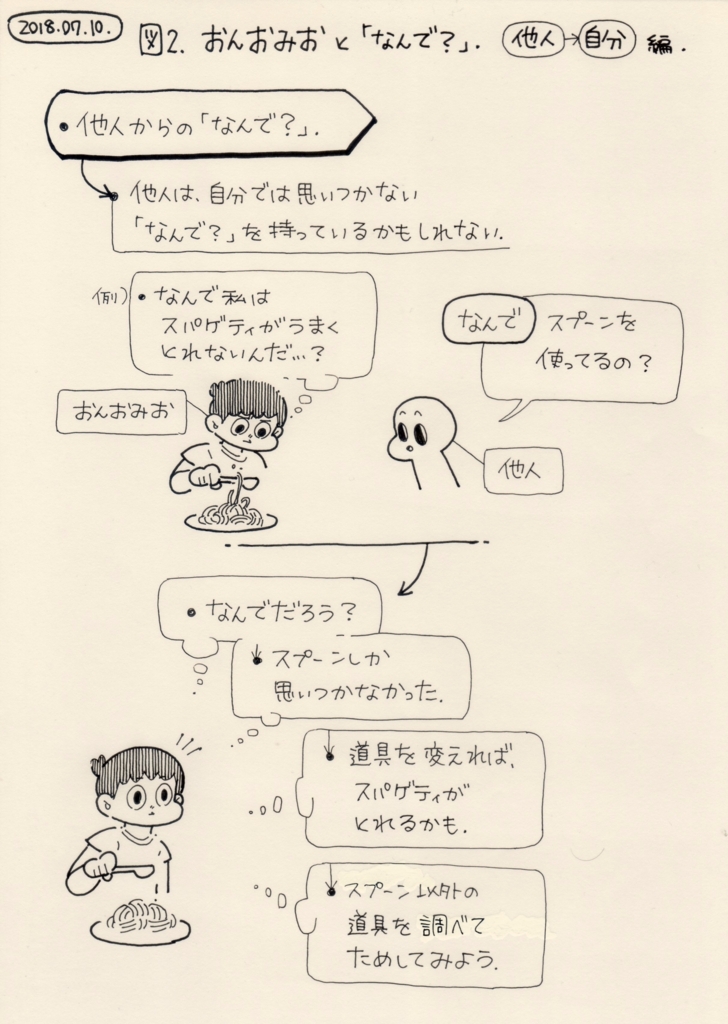 2018.07.10.
図2. おんおみおと「なんで?」. 他人→自分 編.
・他人からの「なんで?」.
・他人は、自分では思いつかない
「なんで?」を持っているかもしれない.
例) ・なんで私は
スパゲティがうまく
とれないんだ…?
なんで スプーンを
使ってるの?
おんおみお
他人
・なんでだろう?
・スプーンしか
思いつかなかった.
・道具を変えれば、
スパゲティが
とれるかも.
・スプーン以外の
道具を調べて
ためしてみよう.